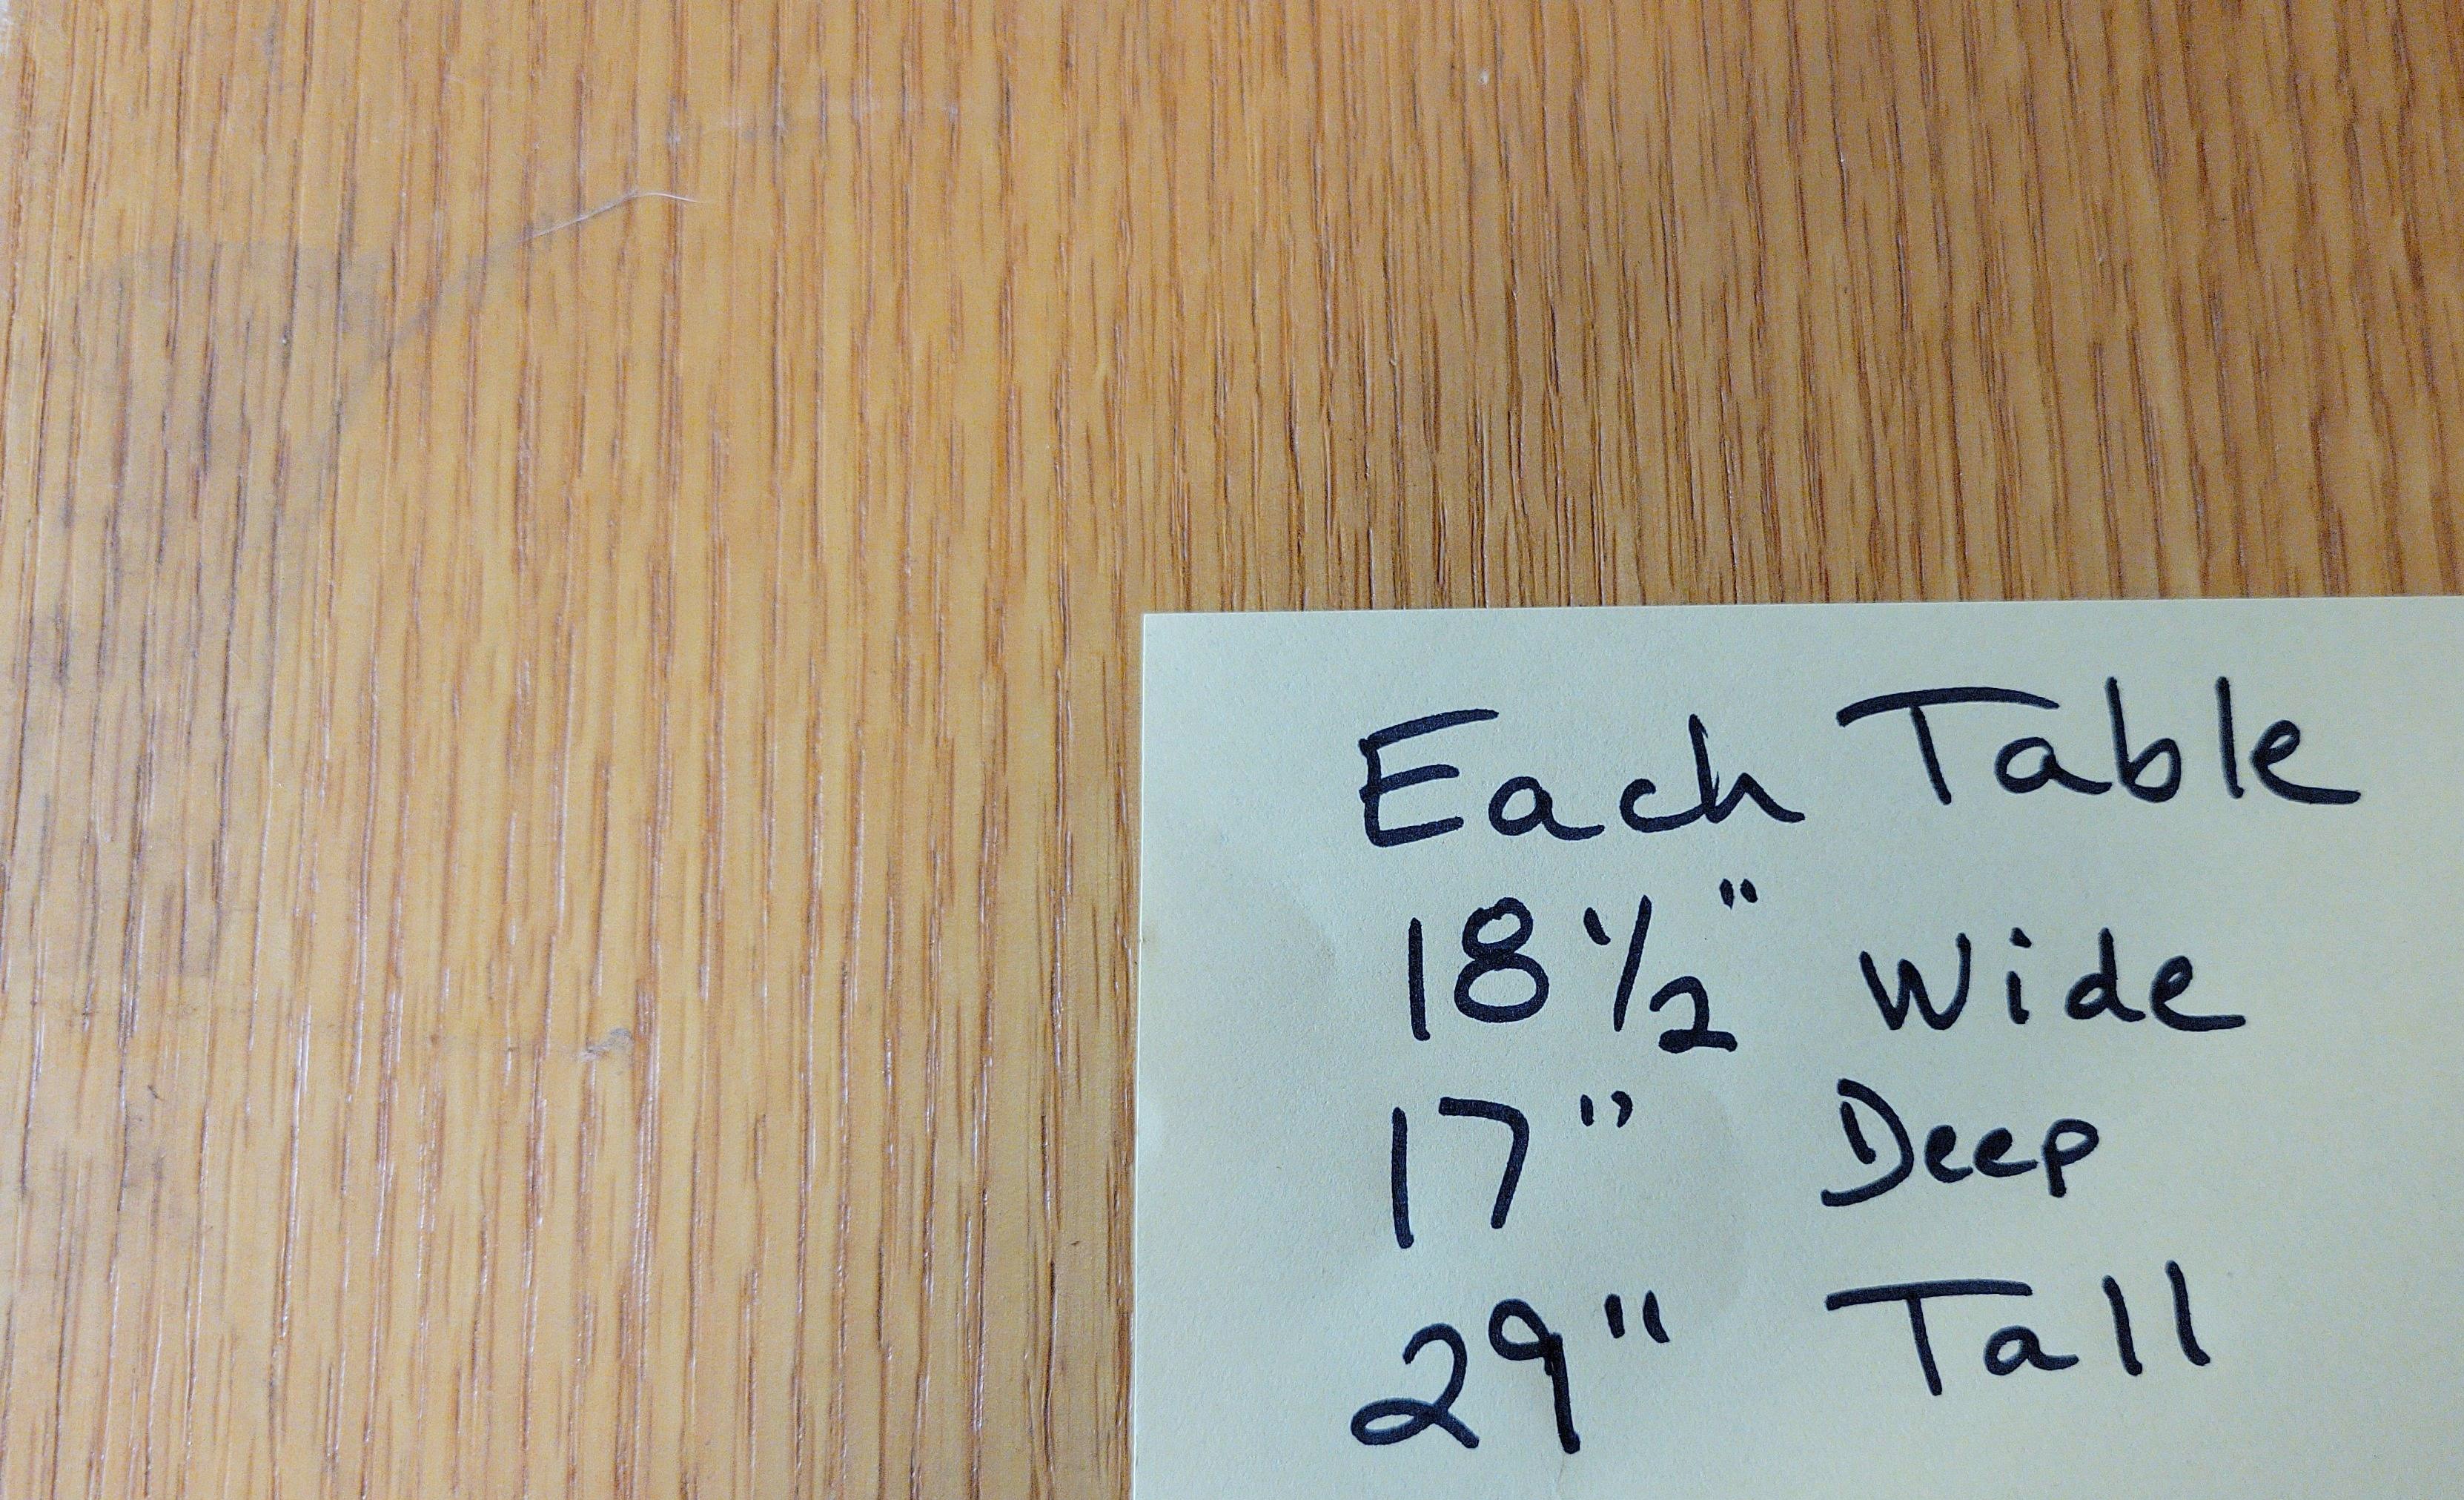 Each Table
18 1/2" Wide
17" Deep
29" Tall